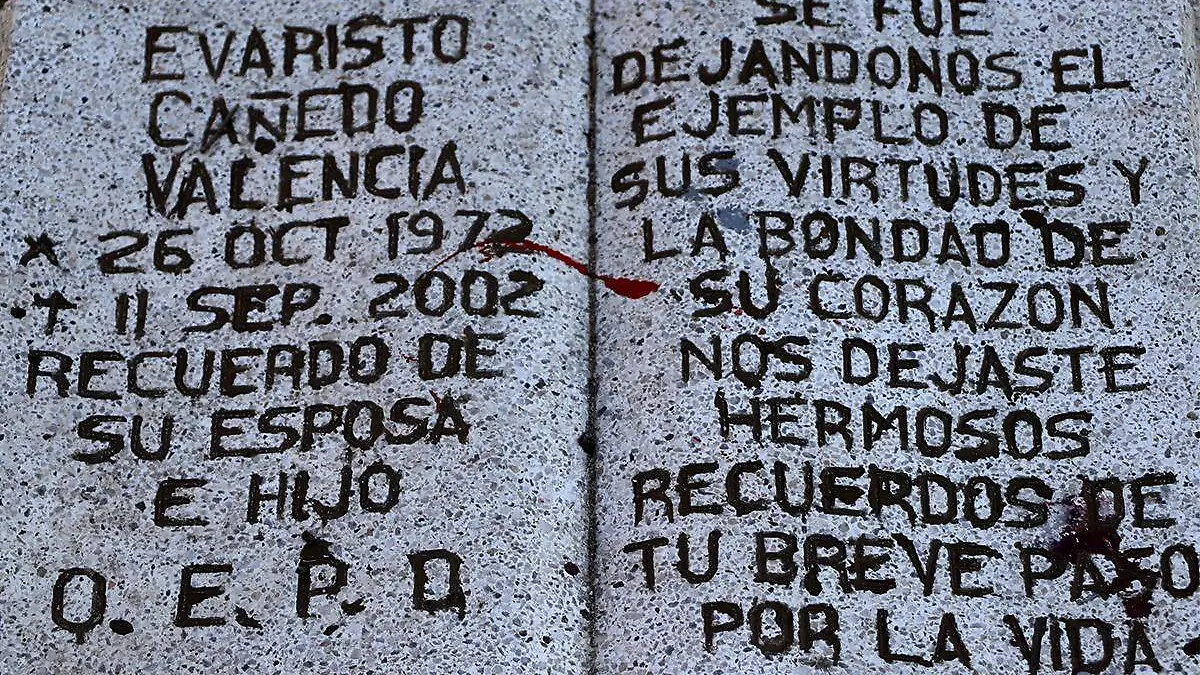 EVARISTO
CAÑEDO
VALENCIA
26 OCT 1972
† 11 SEP. 2002
RECUERDO DE
SU ESPOSA
E HIJO
Q. E. P. D
SE FUE
DEJANDONOS EL
EJEMPLO DE
SUS VIRTUDES Y
LA BONDAD DE
SU CORAZON
NOS DEJASTE
HERMOSOS
RECUERDOS DE
TU BREVE PASO
POR LA VIDA